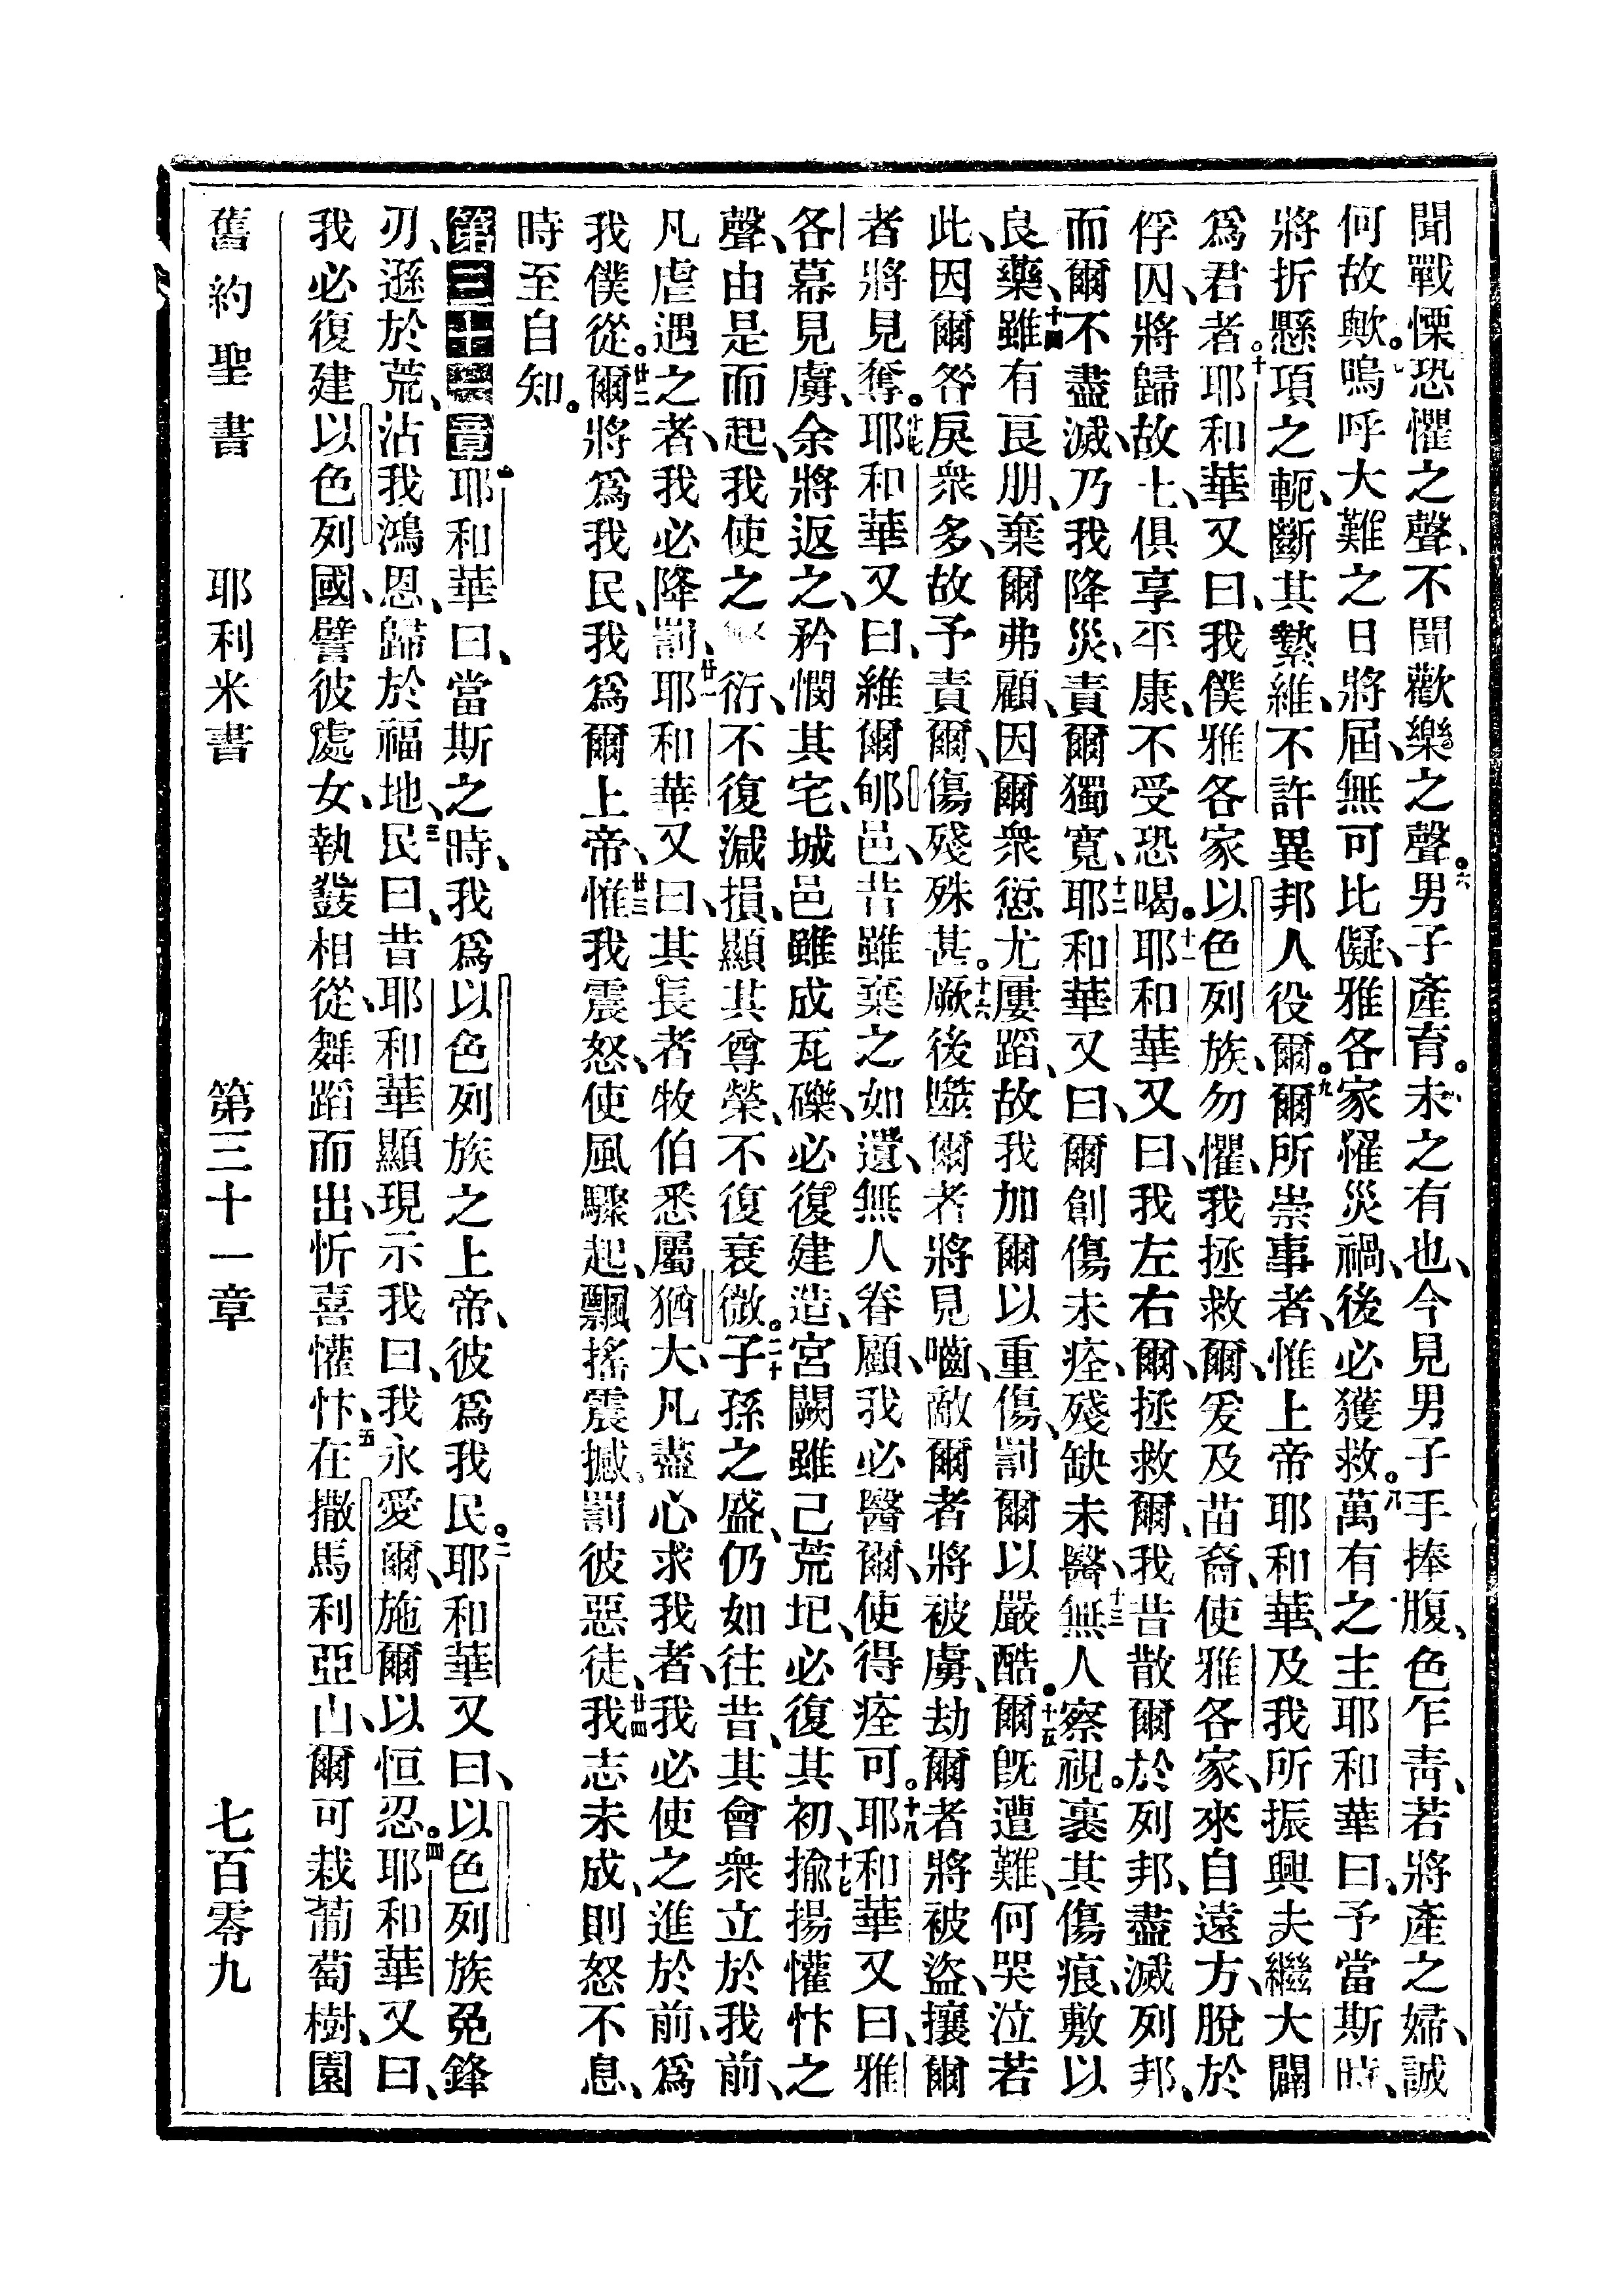 聞戰慄恐懼之聲、不聞歡樂之聲。六男子產育。未之有也、今見男子手捧腹、色乍靑、若將產之婦、誠
何故歟。七嗚呼大難之日將屆、無可比儗、雅各家罹災禍、後必獲救。八萬有之主耶和華曰、予當斯時、
將折懸項之軛、斷其縶維、不許異邦人役爾。九爾所崇事者、惟上帝耶和華、及我所振興夫繼大闢
爲君者。十耶和華又曰、我僕雅各家以色列族、勿懼、我拯救爾、爰及苗裔、使雅各家、來自遠方、脫於
俘囚、將歸故土、俱享平康、不受恐喝。十一耶和華又曰、我左右爾、拯救爾、我昔散爾於列邦、盡滅列邦、
而爾不盡滅、乃我降災、責爾獨寬、十二耶和華又曰、爾創傷未痊、殘缺未醫、十三無人察視。裹其傷痕、敷以
良藥、十四雖有良朋、棄爾弗顧、因爾衆愆尤屢蹈、故我加爾以重傷、罰爾以嚴酷。十五爾旣遭難、何哭泣若
此、因爾咎戾衆多、故予責爾、傷殘殊甚。十六厥後噬爾者將見嚙、敵爾者將被虜、劫爾者將被盜、攘爾
者將見奪。十七耶和華又曰、維爾郇邑、昔雖棄之如遺、無人眷顧、我必醫爾、使得痊可。十八耶和華又曰、雅
各幕見虜、余將返之、矜憫其宅、城邑雖成瓦礫、必復建造、宮闕雖已荒圮、必復其初、十九揄揚懽忭之
聲、由是而起、我使之繁衍、不復減損、顯其尊榮、不復衰微。二十子孫之盛、仍如往昔、其會衆立於我前、
凡虐遇之者、我必降罰、廿一耶和華又曰、其長者牧伯悉屬猶大、凡盡心求我者、我必使之進於前、爲
我僕從。廿二爾將爲我民、我爲爾上帝、廿三惟我震怒、使風驟起、飄搖震撼、罰彼惡徒、廿四我志未成、則怒不息、
時至自知。
第三十一章一耶和華曰、當斯之時、我爲以色列族之上帝、彼爲我民。二耶和華又曰、以色列族免鋒
刃、遜於荒、沾我鴻恩、歸於福地、三民曰、昔耶和華顯現示我曰、我永愛爾、施爾以恒忍。四耶和華又曰、
我必復建以色列國、譬彼處女、執鼗相從、舞蹈而出、忻喜懽忭、五在撒馬利亞山、爾可栽葡萄樹、園
舊約聖書 耶利米書 第三十一章 七百零九